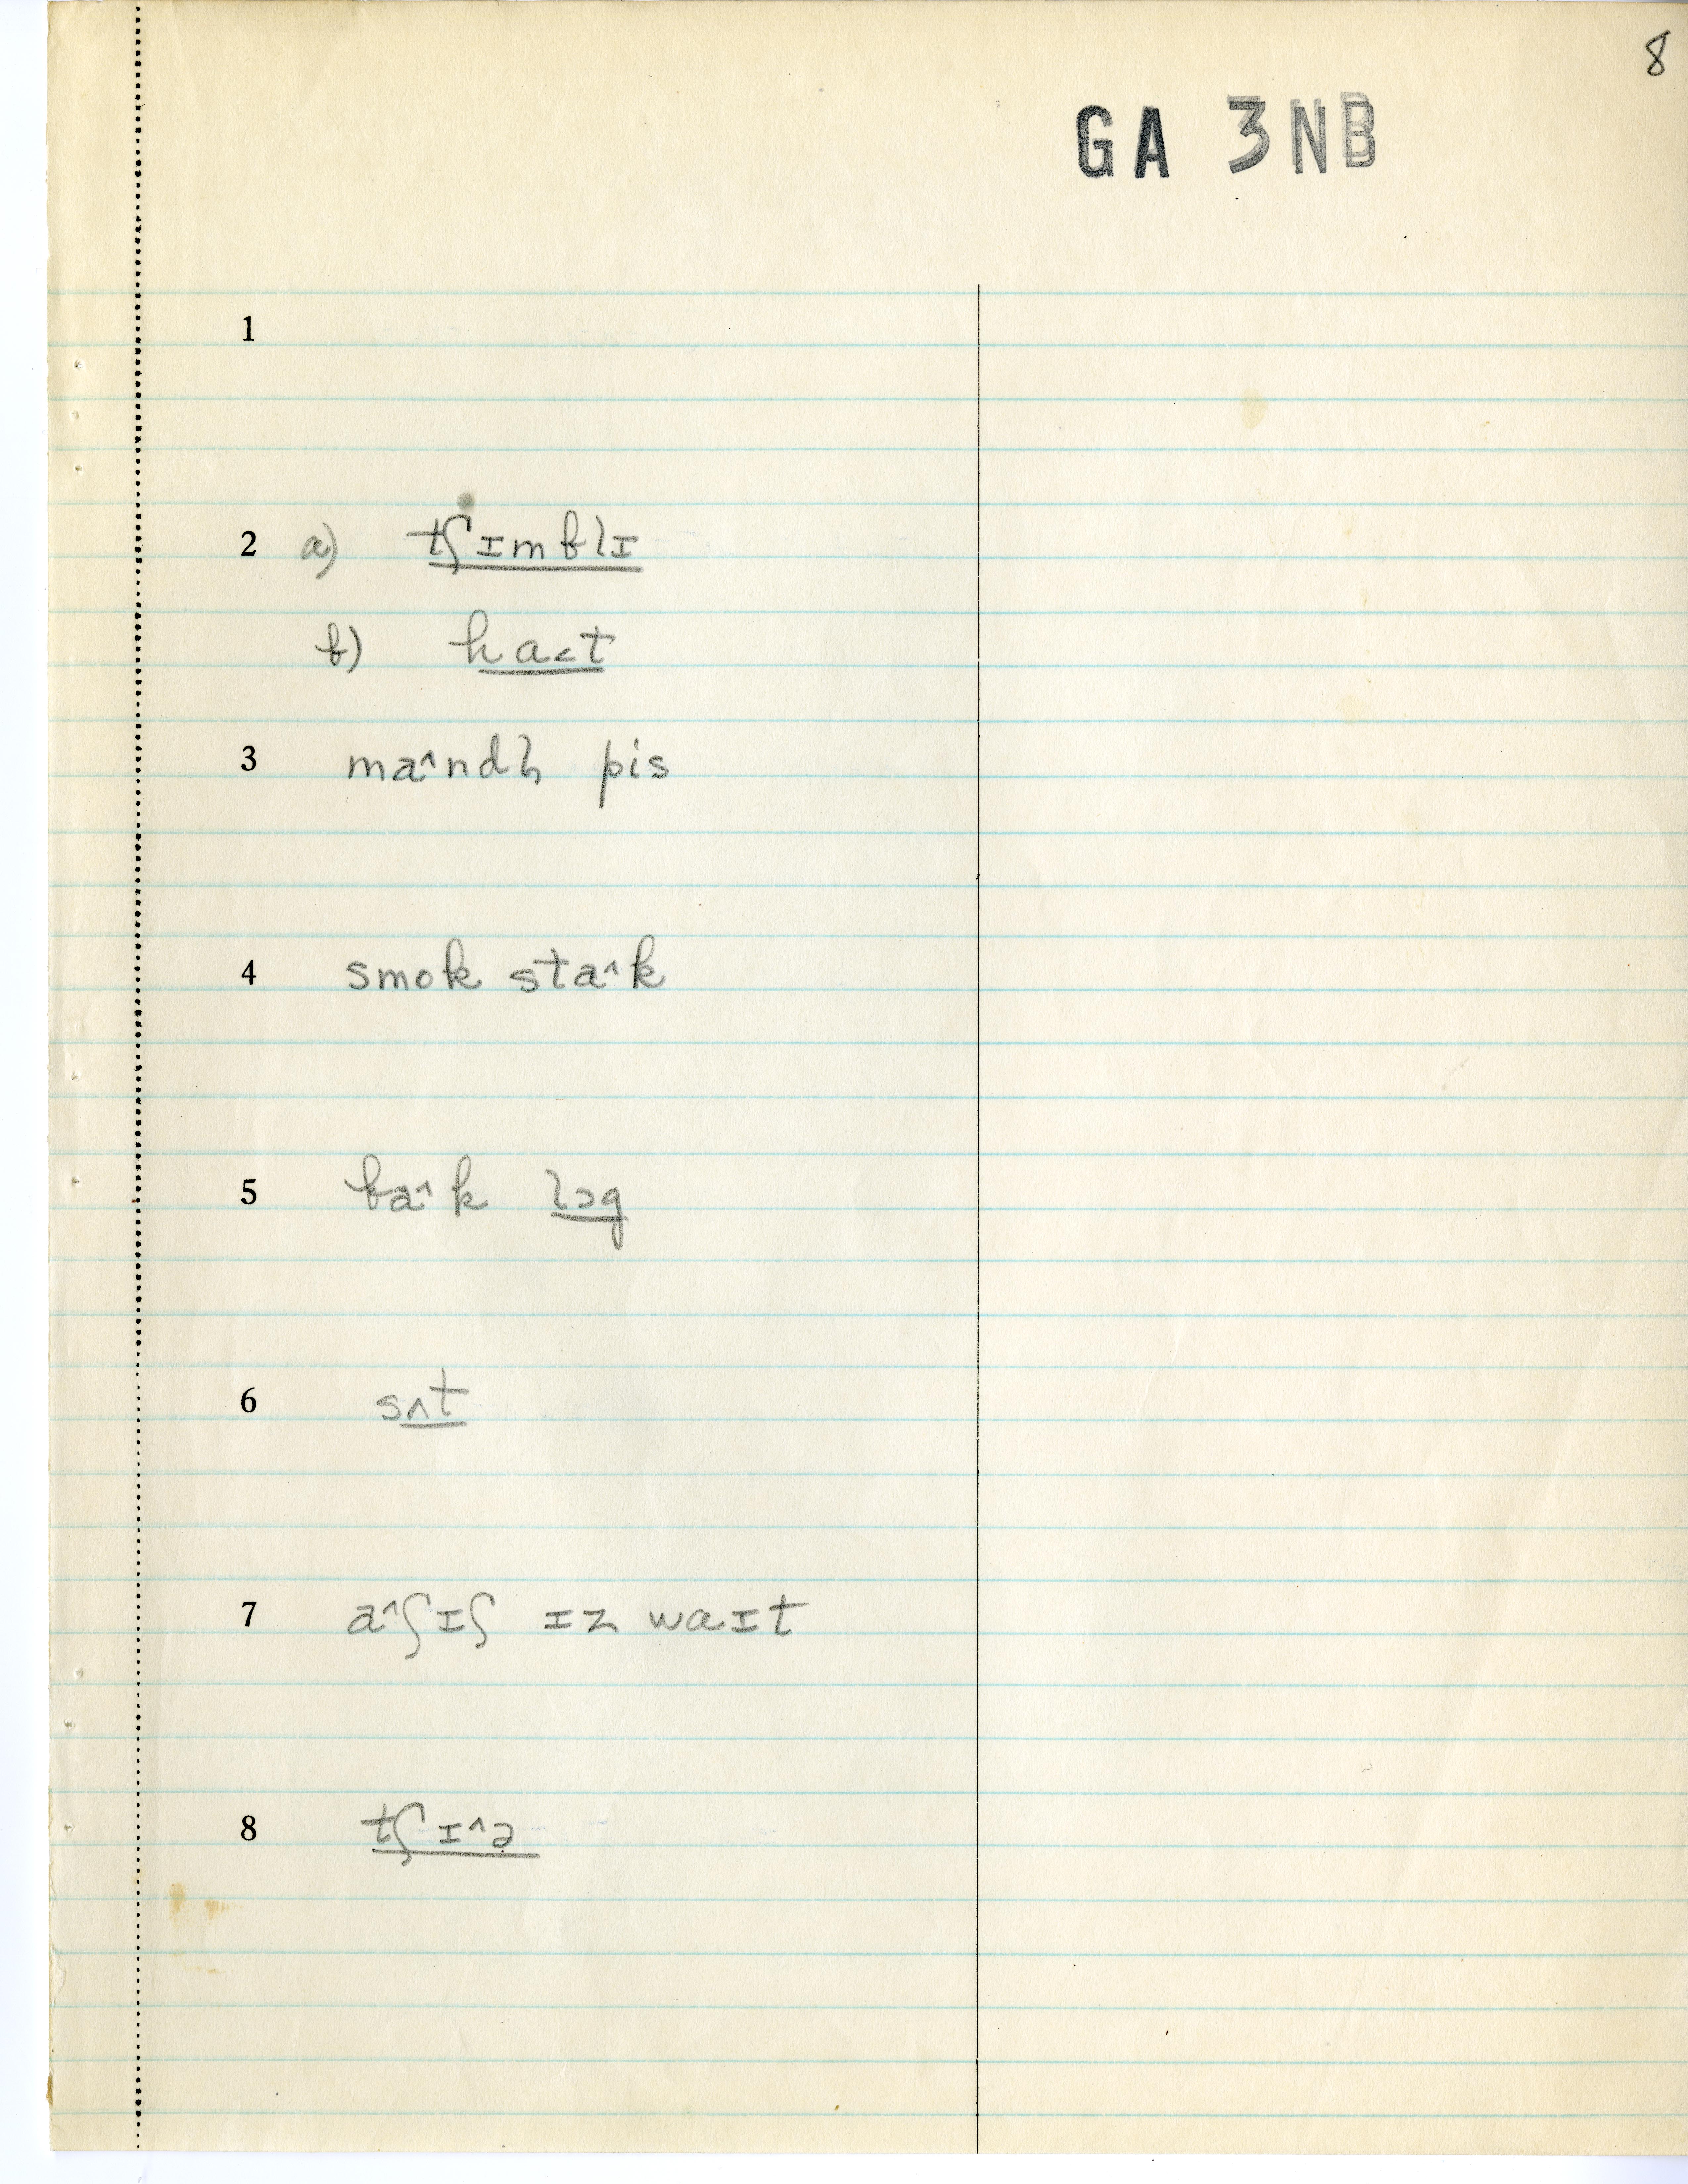 8
GA 3NB
1
2 a) tʃɪmblɪ
b) ha<t
3 ma^ndl̩ pis
4 smok sta^k
5 ba^k lɔg
6 sʌt
7 a^ʃɪʃ ɪz waɪt
8 tʃɪ^ə